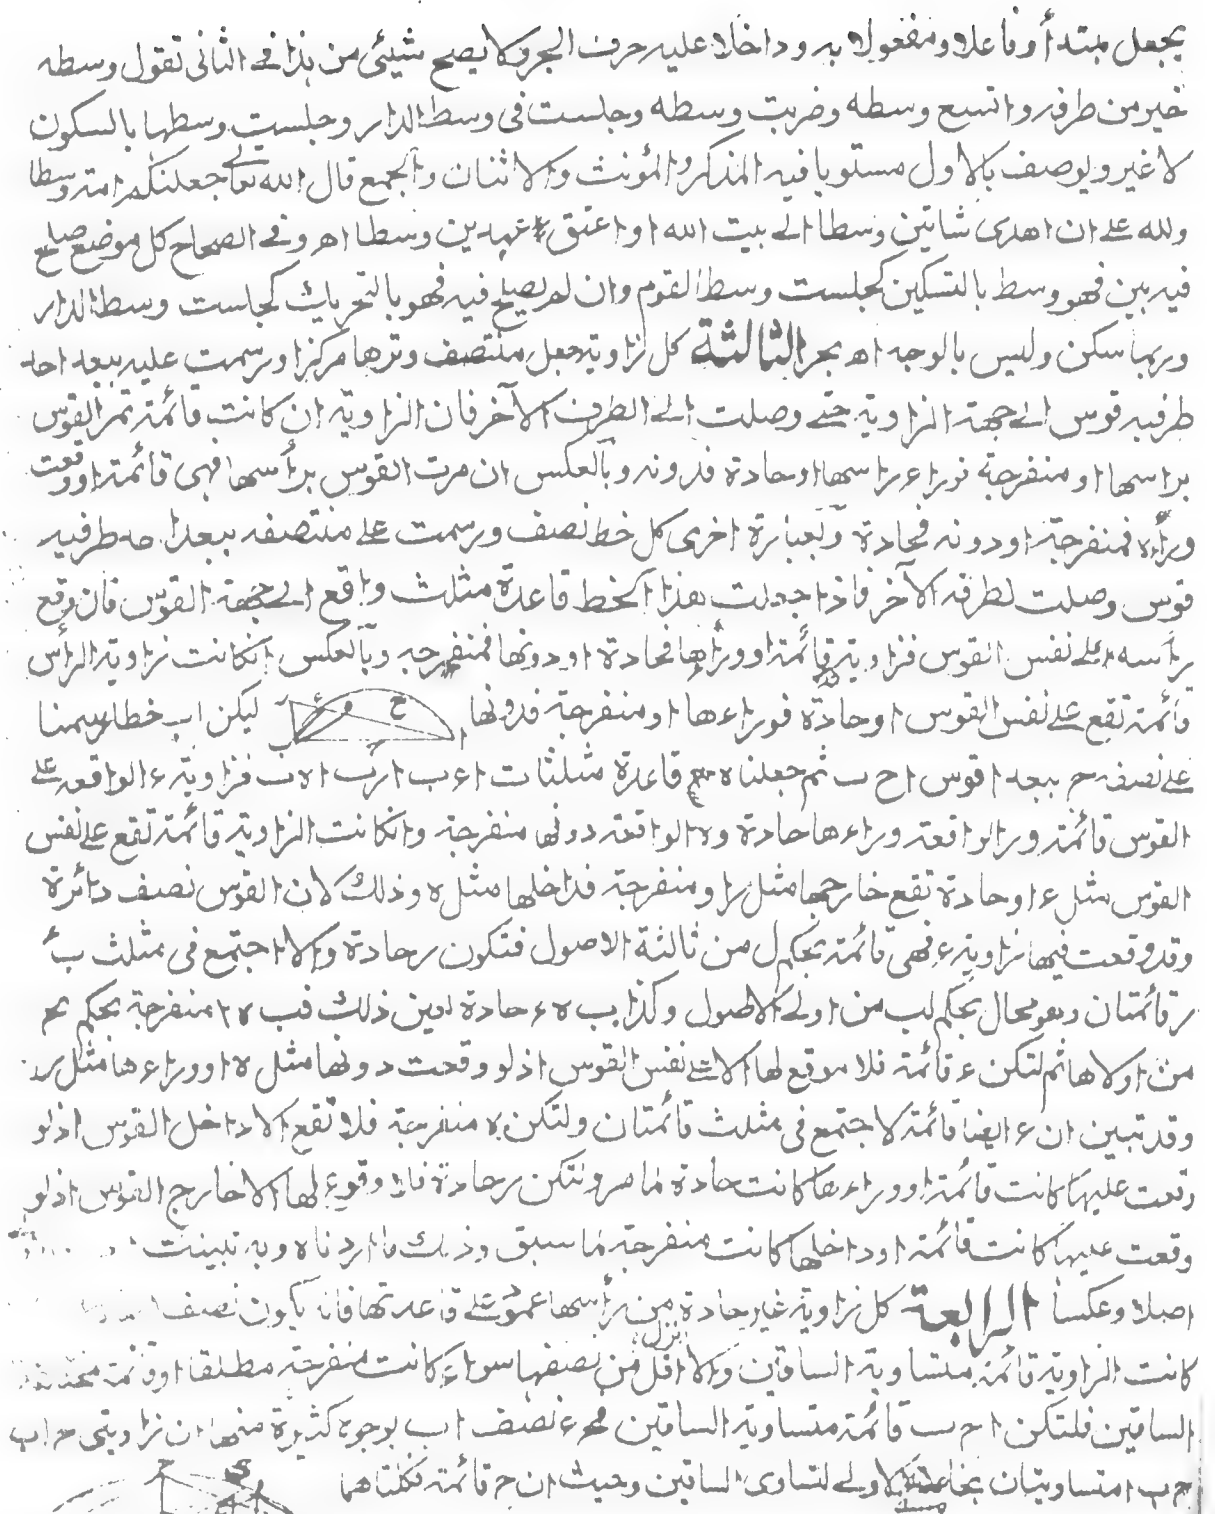 يجعل مبتدأ وفاعلا ومفعولا به وداخلا عليه حرف الجر ولا يصح شيئ من هذا في الثاني تقول وسطه
خير من طرفه واتسع وسطه وضربت وسطه وجلست في وسط الدار وجلست وسطها بالسكون
لا غير ويوصف بالاول مستويا فيه المذكر والمؤنث والاثنان والجمع قال الله تعالى جعلنكم امة وسطا
ولله علي ان اهدى شاتين وسطا الى بيت الله او اعتق عبدين وسطا اهـ وفي الصحاح كل موضع صلح
فيه بين فهو وسط بالتسكين كجلست وسط القوم وان لم يصلح فيه فهو بالتحريك كجلست وسط الدار
وربما سكن وليس بالوجه اهـ بحر الثالثة كل زاوية جعل منتصف وترها مركزا ورسمت عليه ببعد احد
طرفيه قوس الى جهة الزاوية حتى وصلت الى الطرف الآخر فان الزاوية ان كانت قائمة تمر القوس
براسها او منفرجة فوراء راسها او حادة فدونه وبالعكس ان مرت القوس برأسها فهى قائمة او وقعت
وراءه فمنفرجة او دونه فحادة وبعبارة اخرى كل خط نصف ورسمت على منتصفه ببعد احد طرفيه
قوس وصلت لطرفه الآخر فاذا جعلت هذا الخط قاعدة مثلث واقع الى جهة القوس فان وقع
رأسه على نفس القوس فزاوية قائمة او وراءها فحادة او دونها فمنفرجة وبالعكس ان كانت زاوية الرأس
قائمة تقع على نفس القوس او حادة فوراءها او منفرجة فدونها ليكن اب خطا رسمنا
على نصفه ح ببعد ا قوس ا ح ب ثم جعلناه قاعدة مثلثات ا ء ب ا ر ب ا ه ب فزاوية ء الواقعة على
القوس قائمة و ر الواقعة وراءها حادة و ه الواقعة دونها منفرجة وان كانت الزاوية قائمة تقع على نفس
القوس مثل ء او حادة تقع خارجها مثل ر او منفرجة فداخلها مثل ه وذلك لان القوس نصف دائرة
وقد وقعت فيها زاوية ء فهى قائمة بحكم ل من ثالثة الاصول فتكون ر حادة والا اجتمع في مثلث ب ء
ر قائمتان وهو محال بحكم لب من اولى الاصول وكذا ب ه ء حادة لعين ذلك فب ه ا منفرجة بحكم يح
من اولاها ثم لتكن ء قائمة فلا موقع لها الا على نفس القوس اذ لو وقعت دونها مثل ه او وراءها مثل ر
وقد تبين ان ء ايضا قائمة لاجتمع في مثلث قائمتان ولتكن ه منفرجة فلا تقع الا داخل القوس اذ لو
وقعت عليها كانت قائمة او وراءها كانت حادة لما مر ولتكن ر حادة فلا وقوع لها الا خارج القوس اذ لو
وقعت عليها كانت قائمة او داخلها كانت منفرجة لما سبق وذلك ما اردناه وبه تبينت
اصلا وعكسا الرابعة كل زاوية غير حادة نزل من رأسها عمود على قاعدتها فانه يكون نصف
كانت الزاوية قائمة متساوية الساقين والا اقل من نصفها سواء كانت منفرجة مطلقا او قائمة مختلفة
الساقين فلتكن ا ح ب قائمة متساوية الساقين فح ء نصف اب بوجوه كثيرة منها ان زاويتى ح اب
ح ب ا متساويتان بخامسة الاولى لتساوى الساقين وحيث ان ح قائمة فكلتاهما